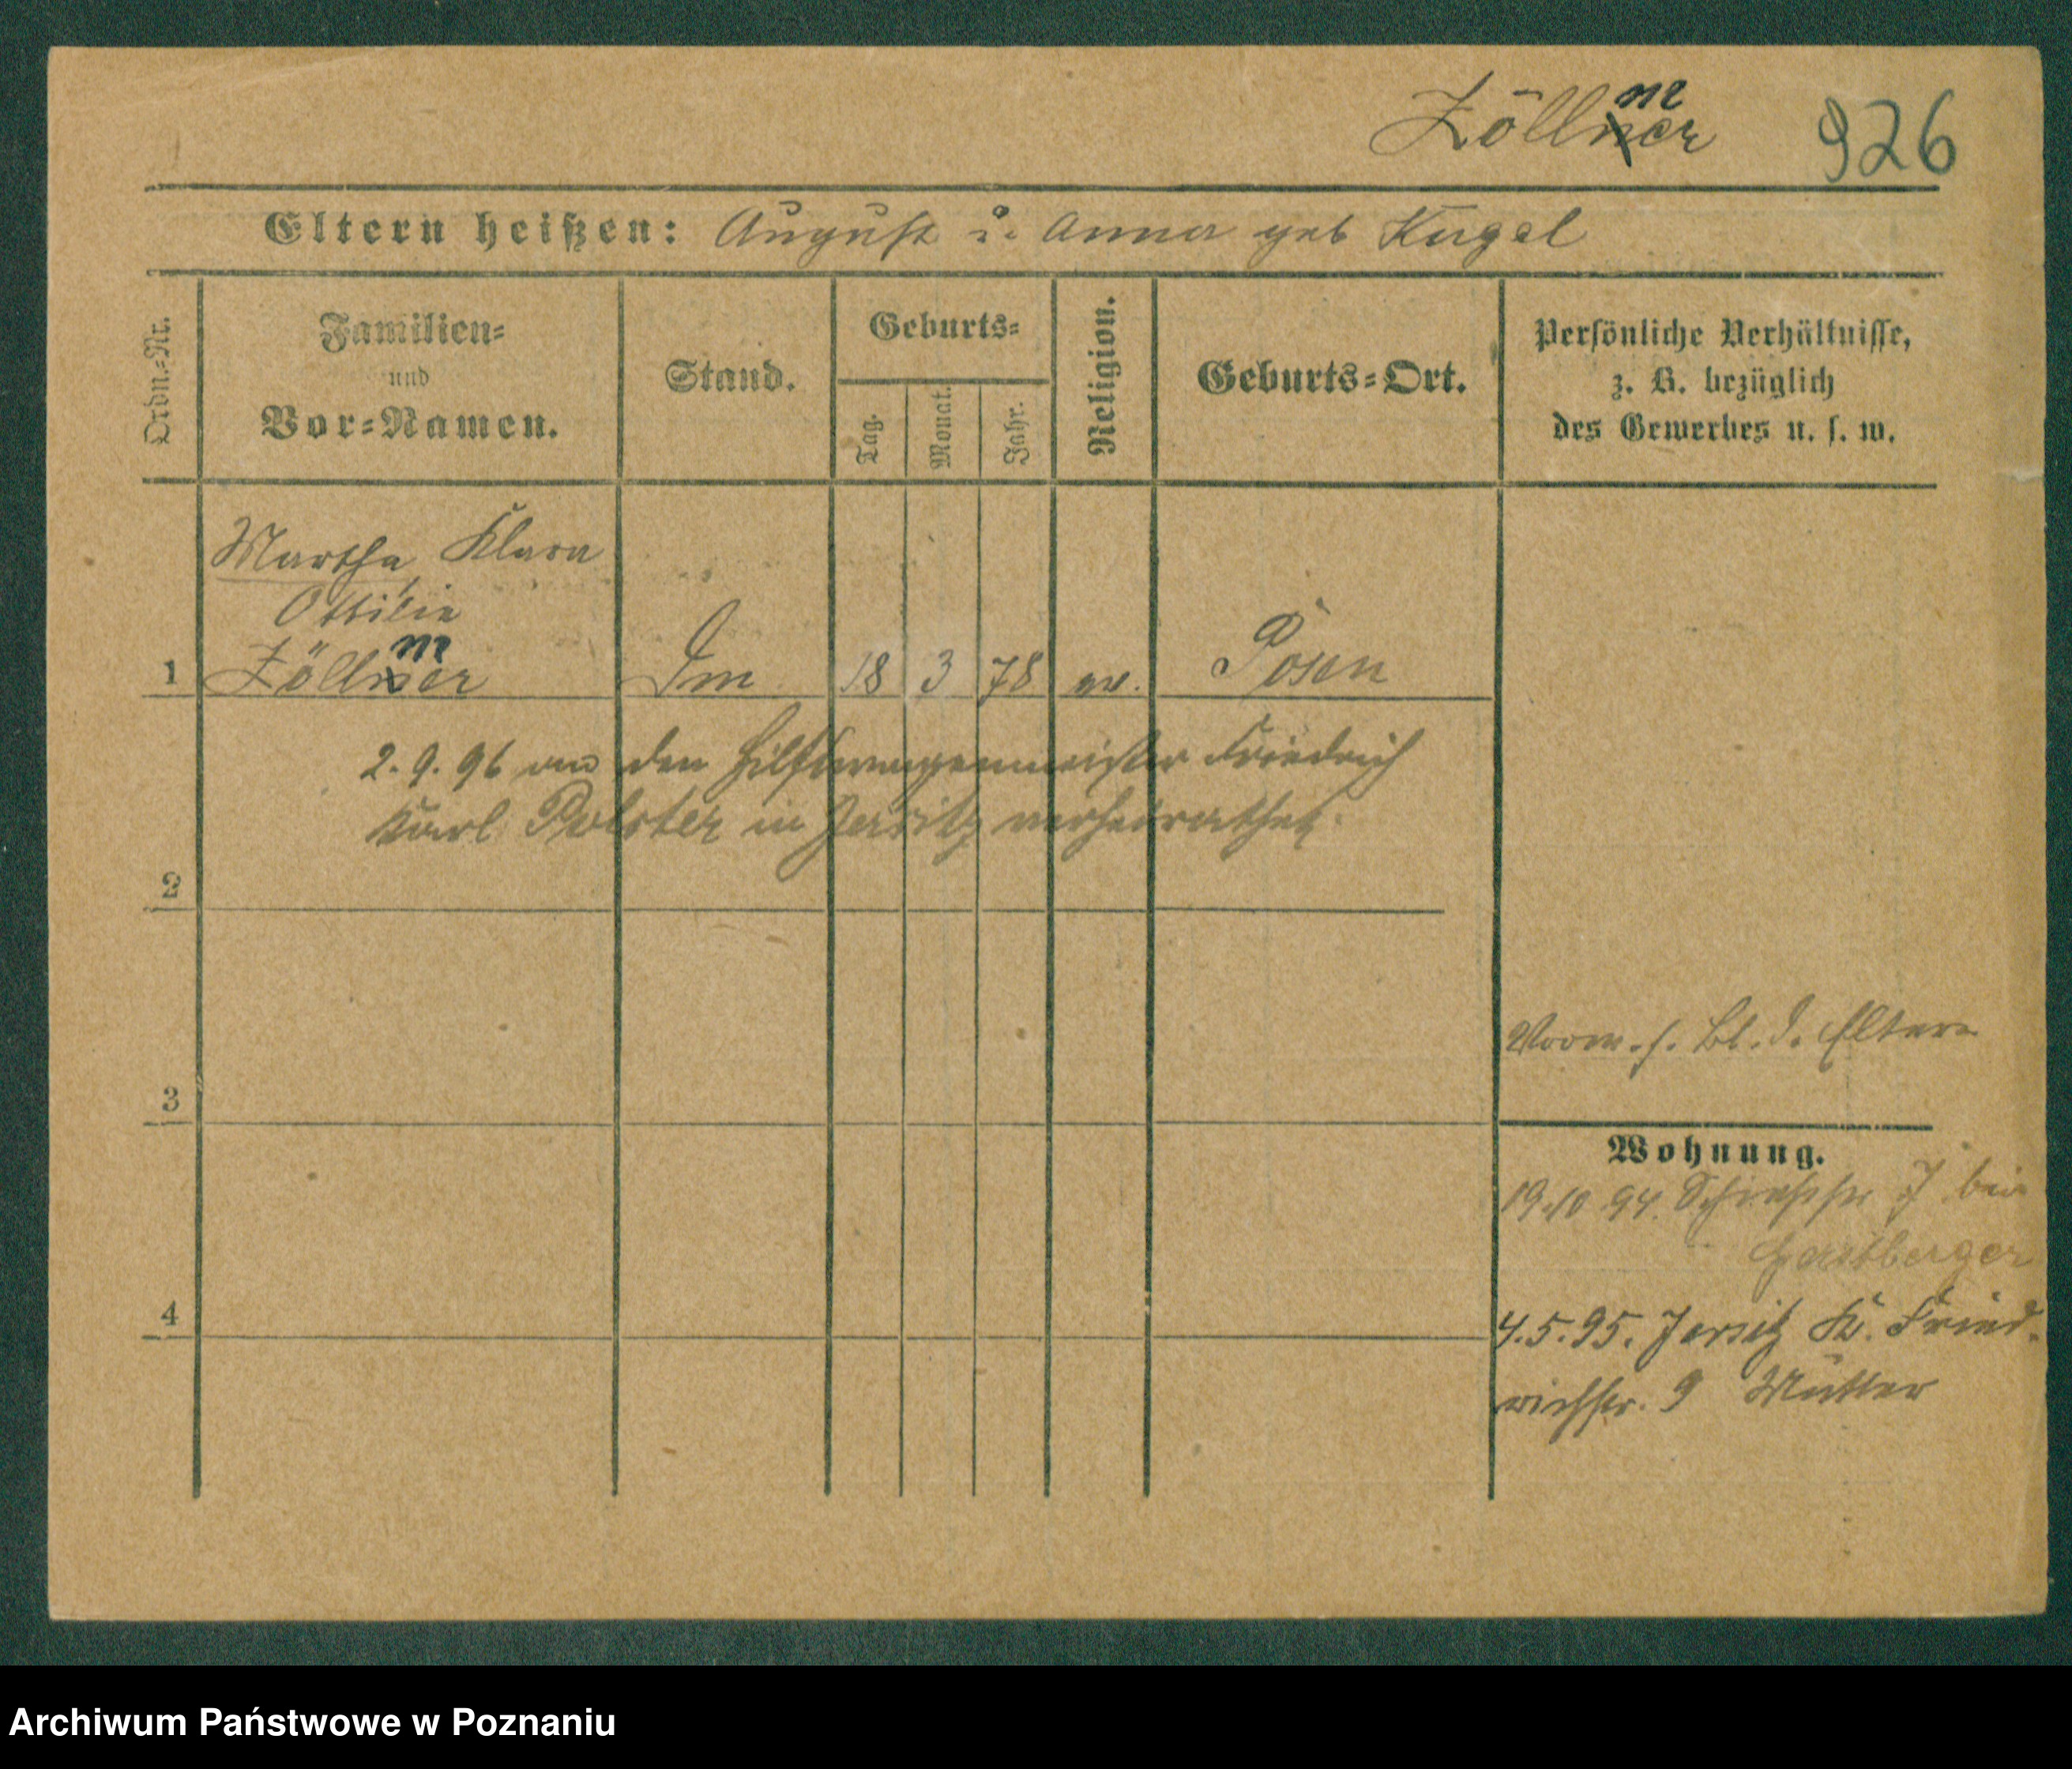 Zöllmer 926
Eltern heißen: August u. Anna geb Kugel
Ordn.-Nr.
Familien-
und
Vor-Namen.
Stand.
Geburts-
Tag.
Monat.
Jahr.
Religion.
Geburts-Ort.
Persönliche Verhältnisse,
z. B. bezüglich
des Gewerbes u. s. w.
Martha Klara
Ottilie
1 Zöllmer 18 3 78 ev. Posen
2.9.96 an den Hilfswagenmeister Friedrich
Karl Polster in Jersitz verheirathet.
2
3
Vorw. s. Bl. d. Eltern
Wohnung.
19.10 94. 7 bei
4
4.5.95. Jersitz K. Fried-
richstr. 9 Mutter
Archiwum Państwowe w Poznaniu